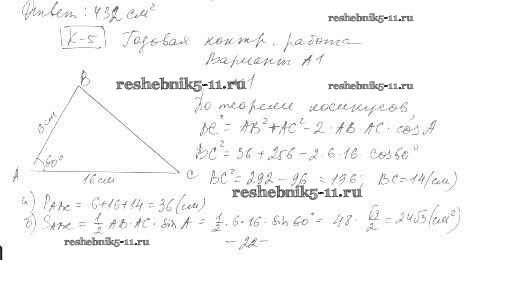 Ответ: 432 см²
reshebnik5-11.ru
К-5 Годовая контр. работа
Вариант А1
reshebnik5-11.ru №1 reshebnik5-11.ru
B
По теореме косинусов,
6см BC² = AB² + AC² - 2·AB·AC·cosA
60° BC² = 36 + 256 - 2·6·16·cos60°
A 16см C BC² = 292 - 96 = 196; BC = 14 (см)
reshebnik5-11.ru
а) P_ABC = 6+16+14 = 36 (см)
б) S_ABC = 1/2 AB·AC·sinA = 1/2·6·16·sin60° = 48·√3/2 = 24√3 (см²)
reshebnik5-11.ru -22-